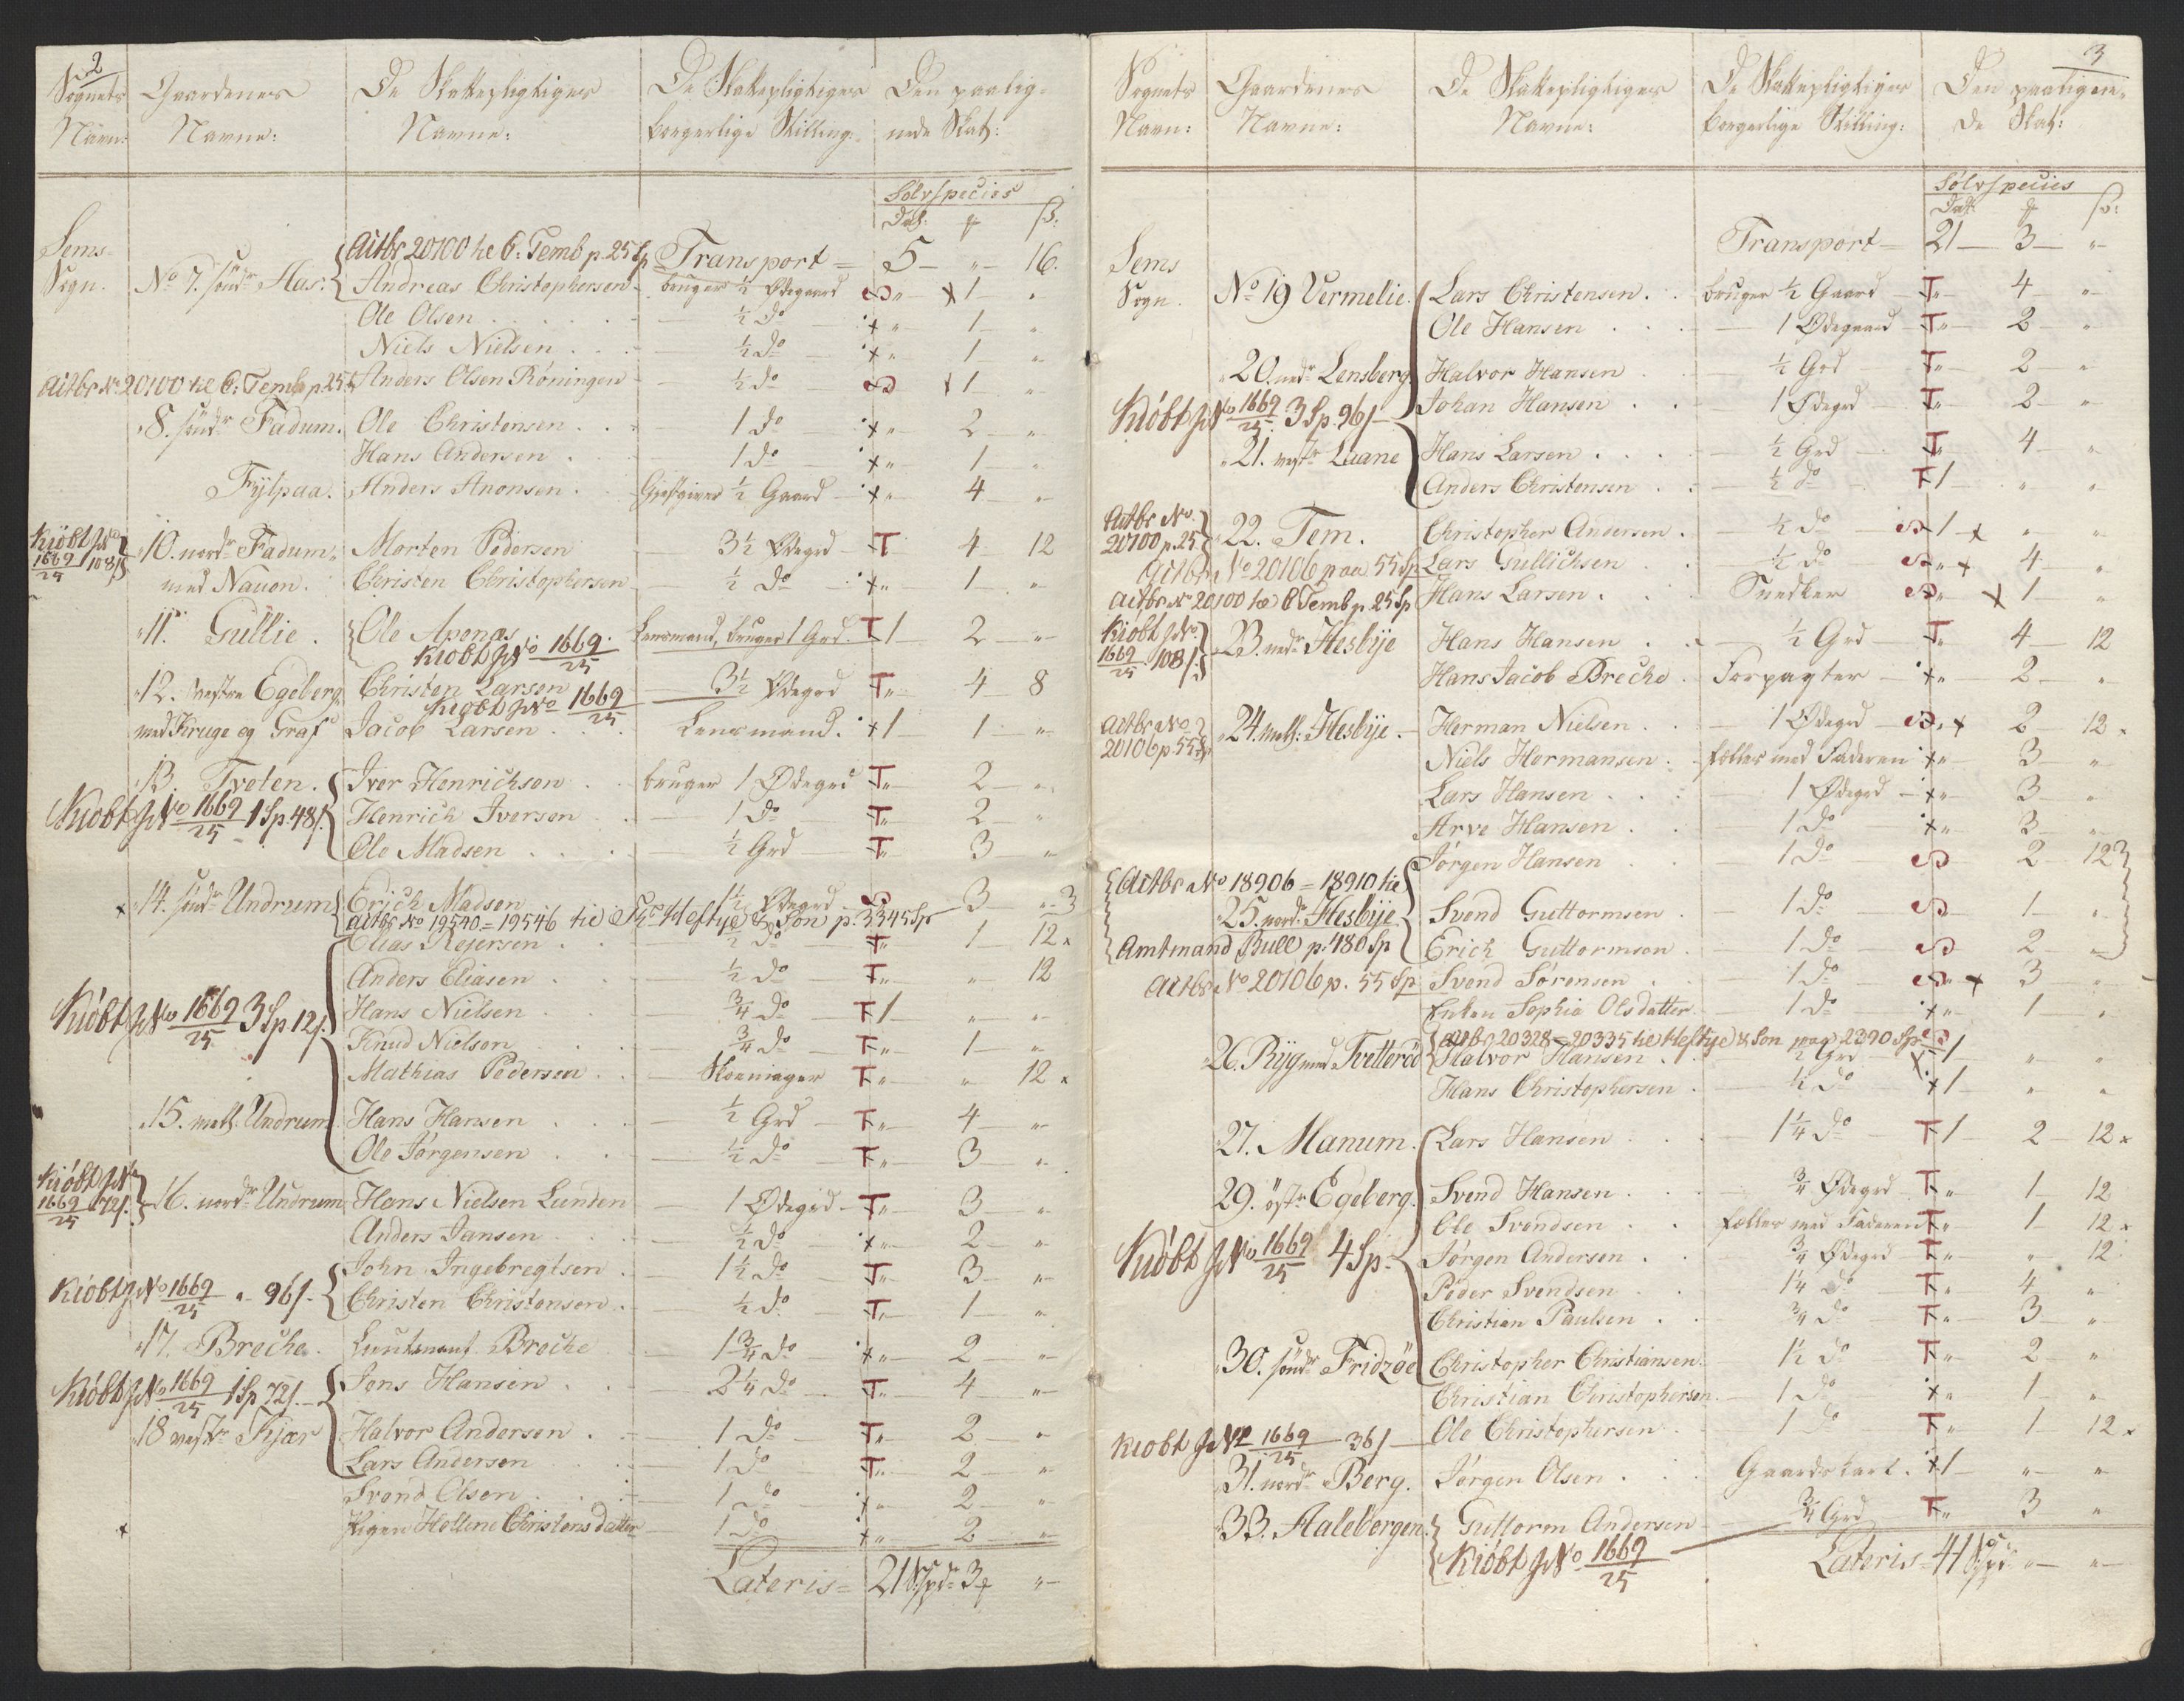 2
Sognets Gaardenes De Skattepligtiges De Skattepligtiges Den paalig-
Navn: Navne: Navne: borgerlige Stilling: nede Skat:
Sølvspecies
Dal. ß:
Actbr 20100 he C. Temb p. 25 Sp Transport = 5 — „ — 16.
Sems
Sogn. No 7. søndr Aas. Andreas Christophersen bruger ½ Ødegaard 1 „
Ole Olsen ½ Do „ 1 „
Niels Nielsen ½ Do „ 1 „
Actbr No 20100 he C. Temb p. 25 Anders Olsen Röningen ½ Do 1 „
8. søndr Fadum. Ole Christensen 1 Do „ 2 „
Hans Andersen 1 Do „ 1 „
Fylpaa. Anders Anonsen Gjestgiver ½ Gaard „ 4 „
Kiöbt No 1669/25 108 ß 10. nordr Fadum Morten Pedersen 3½ Ødegrd T 4 12
med Nauon. Christen Christophersen ½ Do „ 1 „
11. Gullie. Ole Aponas Lensmand, bruger 1 Grd. T 1 2 „
Kiöbt No 1669/25
12. vestre Egeberg Christen Larsen 3½ Ødegrd T „ 4 8
Kiöbt No 1669/25
med Kruge og Graf Jacob Larsen Lensmand. 1 1 „
13. Tveten. Iver Henrichsen bruger 1 Ødegrd T „ 2 „
Kiöbt No 1669/25 1 Sp. 48 ß Henrich Iversen 1 Do T „ 2 „
Ole Madsen ½ Grd T „ 3 „
14. søndr Undrum Erich Madsen 1½ Ødegrd 3 „ 3
Actbr No 19540 = 19546 he Heftye & Søn p. 3345 Sp
Elias Rejersen ½ Do T „ 1 12
Anders Eliasen ½ Do T „ „ 12
Kiöbt No 1669/25 3 Sp 12 ß Hans Nielsen ¾ Do T 1 „ „
Knud Nielsen ¾ Do T „ 1 „
Mathias Pedersen Skoemager T „ „ 12
15. mell. Undrum Hans Hansen ½ Grd T „ 4 „
Ole Jørgensen ½ Do T „ 3 „
Kiöbt No 1669/25 72 ß 16. nordr Undrum Hans Nielsen Lunden 1 Ødegrd T „ 3 „
Anders Jansen ½ Do „ 2 „
John Ingebregtsen 1½ Do T „ 3 „
Kiöbt No 1669/25 „ 96 ß Christen Christensen ½ Do T „ 1 „
17. Breche. Lieutenant Breche 1¾ Do „ 2 „
Kiöbt No 1669/25 1 Sp 72 ß Jens Hansen 2¼ Do T „ 4 „
18 vestr Kjær Halvor Andersen 1 Do T „ 2 „
Lars Andersen 1 Do T „ 2 „
Svend Olsen 1 Do „ 2 „
Pigen Hellene Christensdatter 1 Do „ 2 „
Lateris = 21 Spdr 3 „
3
Sognets Gaardenes De Skattepligtiges De Skattepligtiges Den paaligne-
Navn: Navne: Navne: borgerlige Stilling: de Skat:
Sølvspecies
Dal. ß:
Transport 21 — 3 — „
Sems
Sogn. No 19 Vermelie. Lars Christensen. bruger ½ Gaard T „ 4 „
Ole Hansen 1 Ødegaard T „ 2 „
20. nedr Lensberg Halvor Hansen ½ Grd T „ 2 „
Kiöbt No 1669/25 3 Sp. 96 ß Johan Hansen 1 Ødegrd T „ 2 „
21. vestr Laane Hans Larsen ½ Grd T „ 4 „
Anders Christensen ½ Do T 1 „ „
Actbr No 20100 p. 25 22. Tem. Christopher Andersen ½ Do 1 „ „
Actbr No 20106 paa 55 Sp Lars Gullichsen ½ Do „ 4 „
Actbr No 20100 he C Temb p. 25 Sp Hans Larsen Snedker „ 1 „
Kiöbt No 1669/25 108 ß 23. nedr Hesbye Hans Hansen ½ Grd T „ 4 12
Hans Jacob Breche Forpagter „ 2 „
Actbr No 20106 p 55 Sp 24. mell: Hesbye Herman Nielsen 1 Ødegrd „ 2 12
Niels Hermansen fælles med Faderen „ 3 „
Lars Hansen 1 Ødegrd „ 3 „
Arve Hansen 1 Do „ 3 „
Jørgen Hansen 1 Do 2 12
Actbr No 18906 = 18910 he
25. nordr Hesbye Svend Guttormsen 1 Do 1 „
Amtmand Bull p. 480 Sp Erich Guttormsen 1 Do 2 „
Actbr No 20106 p. 55 Sp Svend Sørensen 1 Do „ 3 „
Enken Sophia Olsdatter 1 Do „ 1 „
Actbr 20328 = 20335 he Heftye & Søn paa 2390 Sp.
26. Ryg med Tvetteröd Halvor Hansen ½ Grd 1 „ „
Hans Christophersen ½ Do 1 „ „
27. Manum. Lars Hansen 1¼ Do T 1 2 12
29. østr Egeberg. Svend Hansen ¾ Ødegrd T „ 1 12
Ole Svendsen fælles med Faderen T „ 1 12
Kiöbt No 1669/25 4 Sp. Jørgen Andersen ¾ Ødegrd T „ „ 12
Peder Svendsen 1¼ Do T „ 4 „
Christian Paulsen ¾ Do T „ 3 „
30. søndr Fridzöe Christopher Christiansen 1½ Do T „ 2 „
Christian Christophersen 1 Do „ 1 „
Kiöbt No 1669/25 36 ß Ole Christophersen 1 Do T „ 1 12
31. nordr Berg. Jørgen Olsen Gaardskarl. 1 „ „
33. Halebergen. Guttorm Andersen ¾ Grd T „ 3 „
Kiöbt No 1669/25
Lateris = 41 Spd. „ „